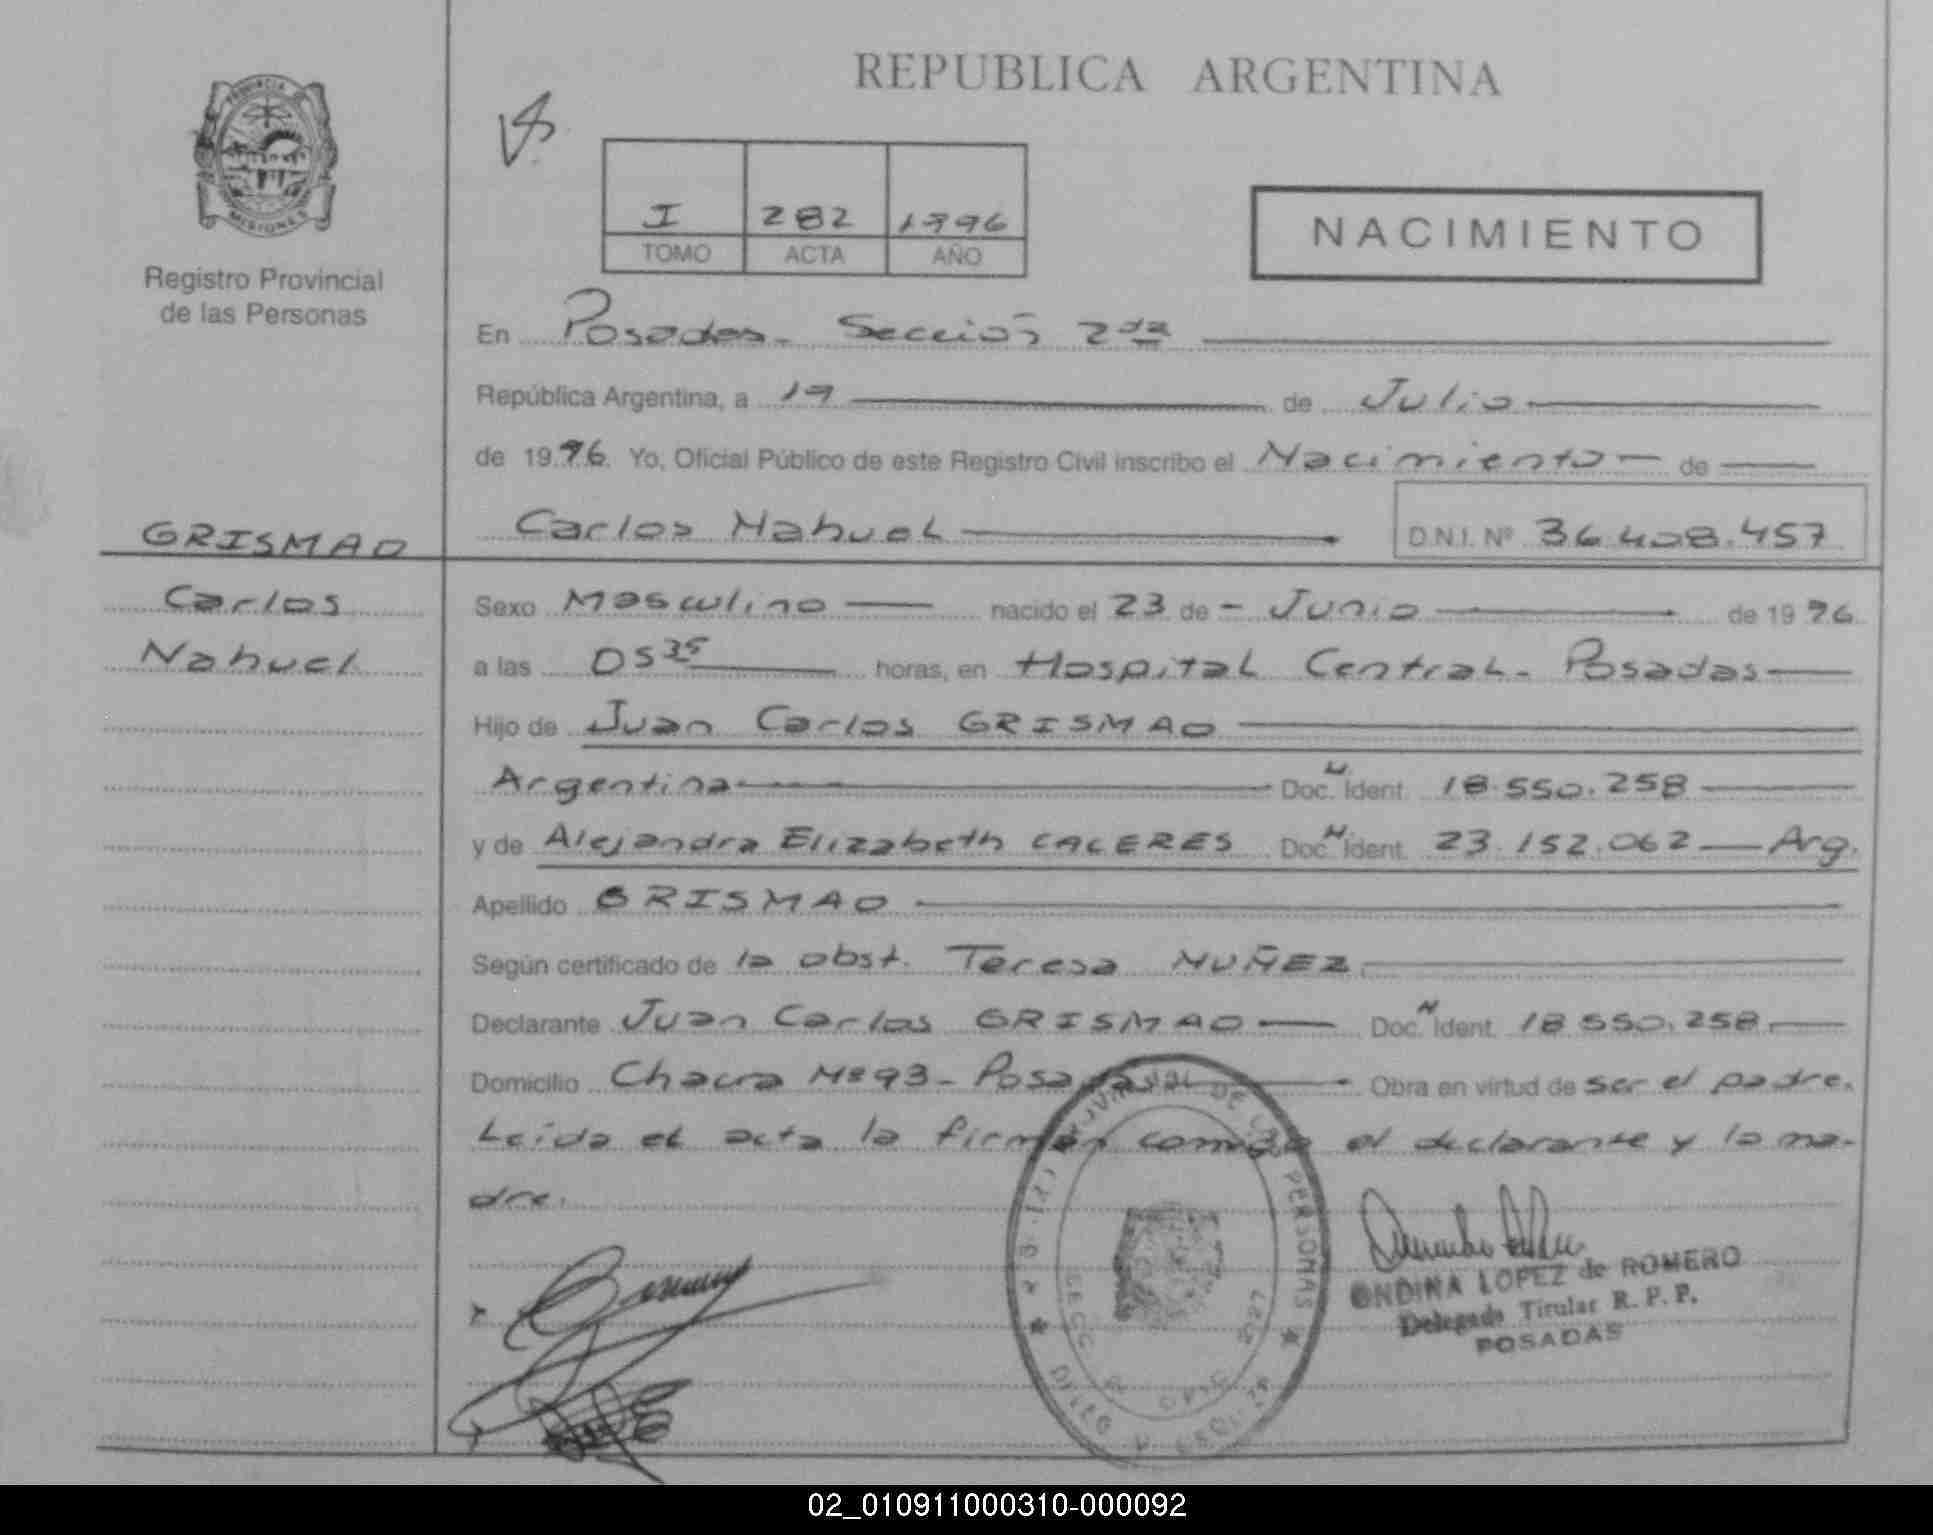 REPUBLICA ARGENTINA
PROVINCIA DE
MISIONES
Registro Provincial
de las Personas
I 282 1996
TOMO ACTA AÑO
NACIMIENTO
En Posadas - Sección 2da
República Argentina, a 19 de Julio
de 1996 Yo, Oficial Público de este Registro Civil inscribo el Nacimiento de
GRISMAO Carlos Nahuel D.N.I. Nº 36.408.457
Carlos Sexo Masculino nacido el 23 de - Junio de 1996
Nahuel a las 05 35 horas, en Hospital Central - Posadas
Hijo de Juan Carlos GRISMAO
Argentina Doc. N. Ident. 18.550.258
y de Alejandra Elizabeth CACERES Doc. N Ident. 23.152.062 Arg.
Apellido GRISMAO
Según certificado de la obst. Teresa NUÑEZ
Declarante Juan Carlos GRISMAO Doc. N Ident. 18.550.258
Domicilio Chacra Nº 93 - Posadas Obra en virtud de ser el padre.
Leída el acta la firman conmigo el declarante y la ma-
dre.
DE LAS PERSONAS
ONDINA LOPEZ de ROMERO
Delegada Titular R. P. P.
POSADAS
02_010911000310-000092